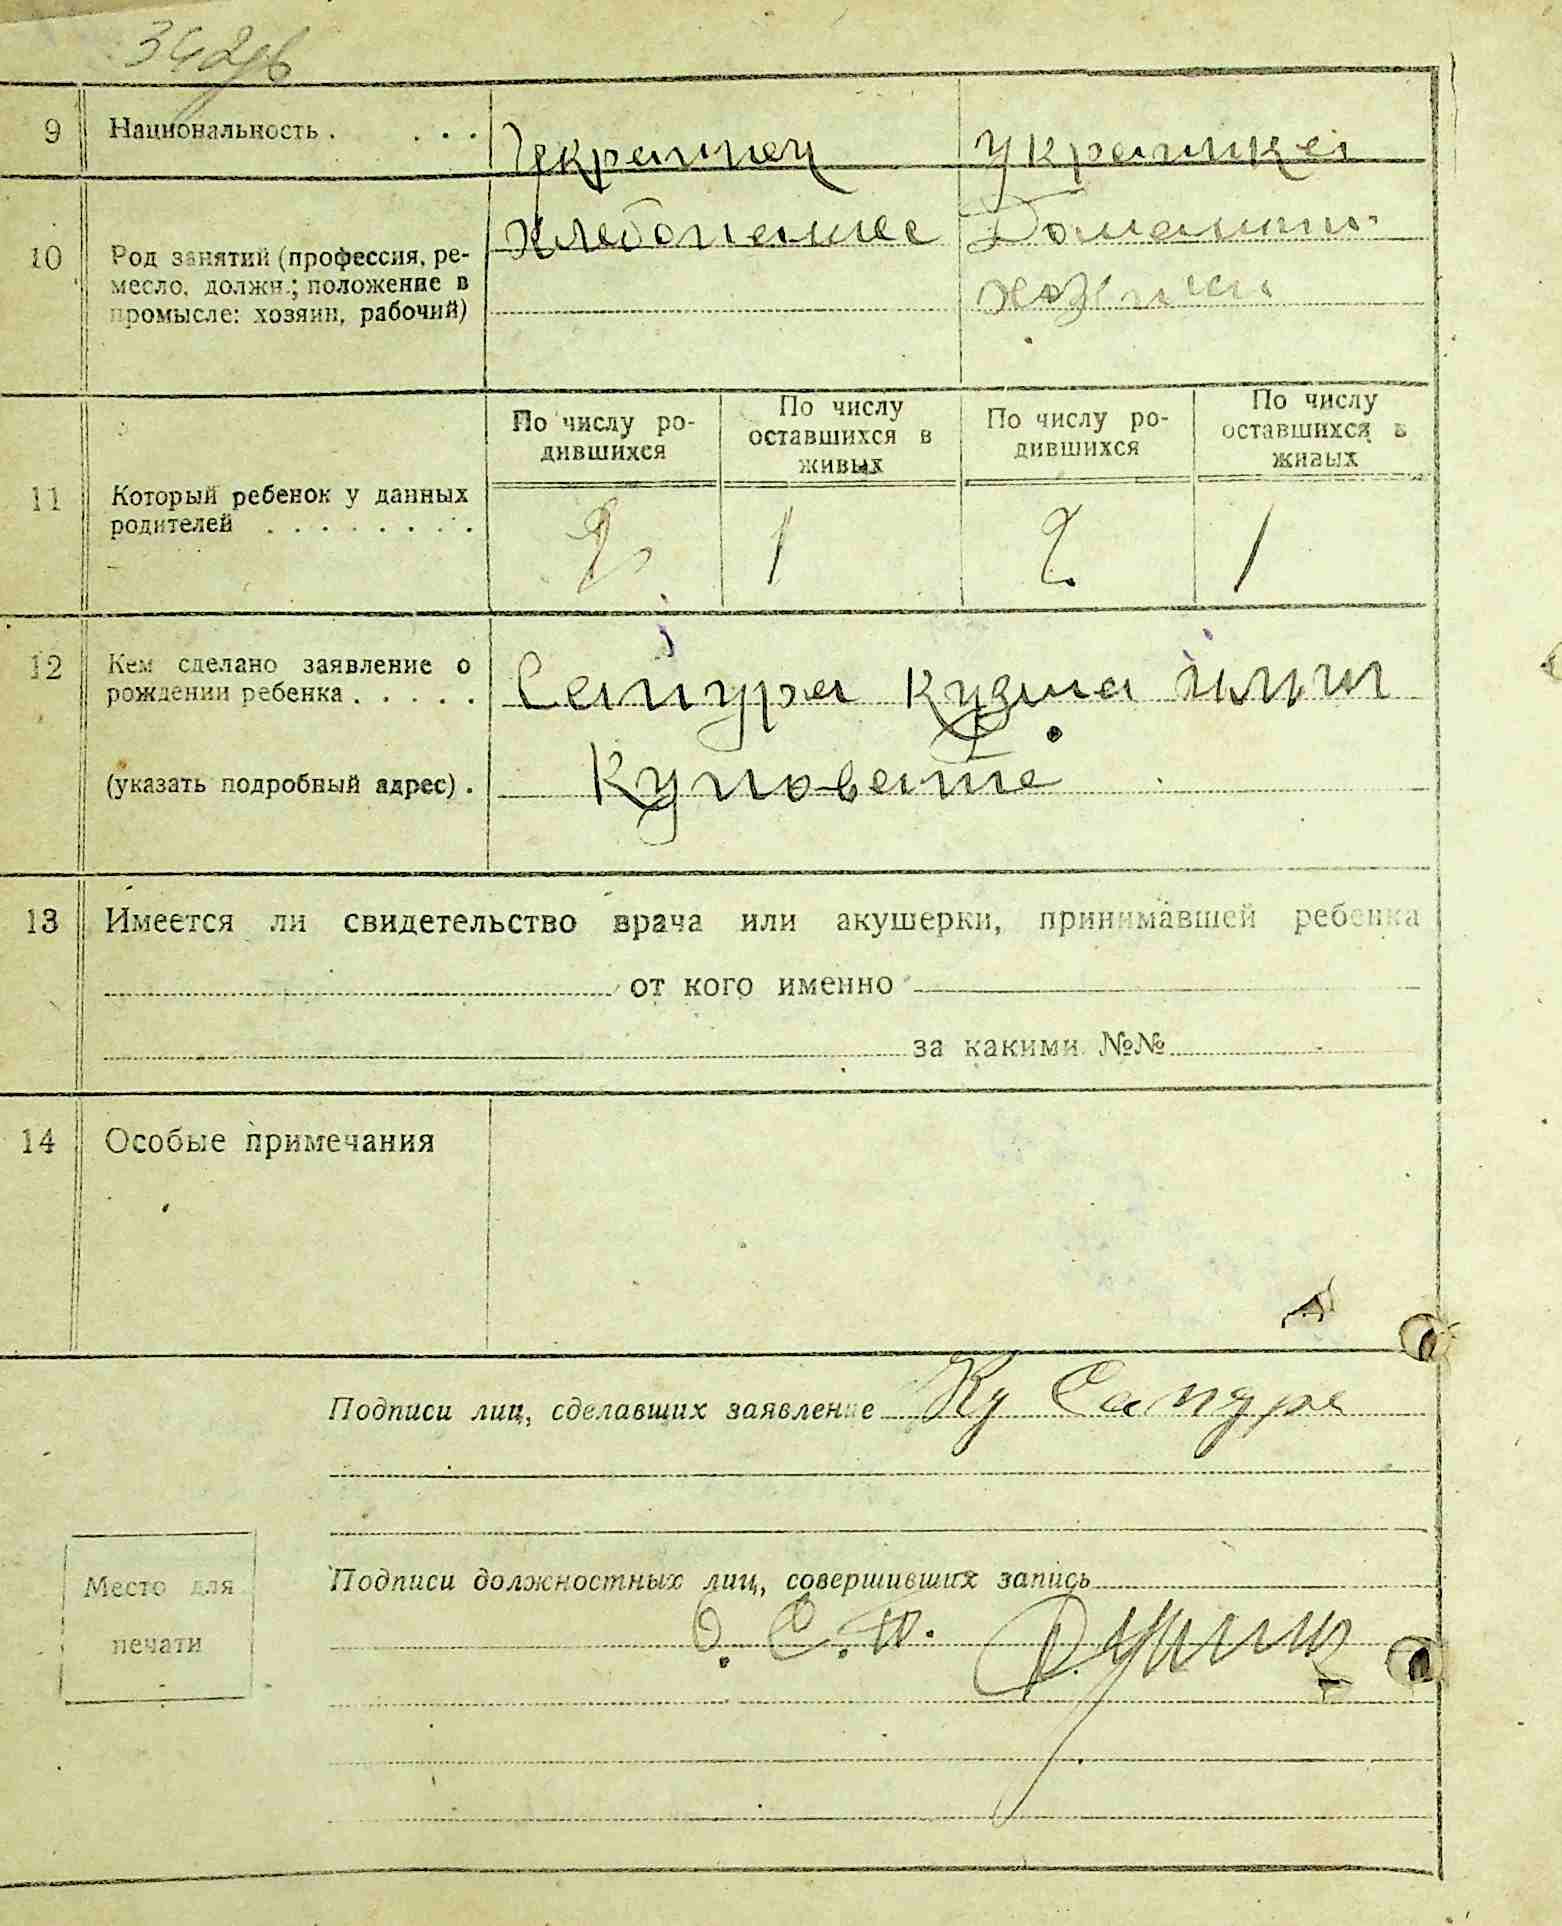 342об
9 Национальность . . . . Украинец Украинка
Хлебопашес Домашн.
10 Род занятий (профессия, ре-
месло, должн.; положение в
промысле: хозяин, рабочий)
По числу ро-
дившихся
По числу
оставшихся в
живых
По числу ро-
дившихся
По числу
оставшихся в
живых
11 Который ребенок у данных
родителей . . . . . . . .
2 1 2 1
12 Кем сделано заявление о
рождении ребенка . . . . .
Сапура Кузма
(указать подробный адрес) . Куповате
13 Имеется ли свидетельство врача или акушерки, принимавшей ребенка
от кого именно
за какими №№
14 Особые примечания
Подписи лиц, сделавших заявление Ку Сапура
Подписи должностных лиц, совершивших запись
Место для
печати